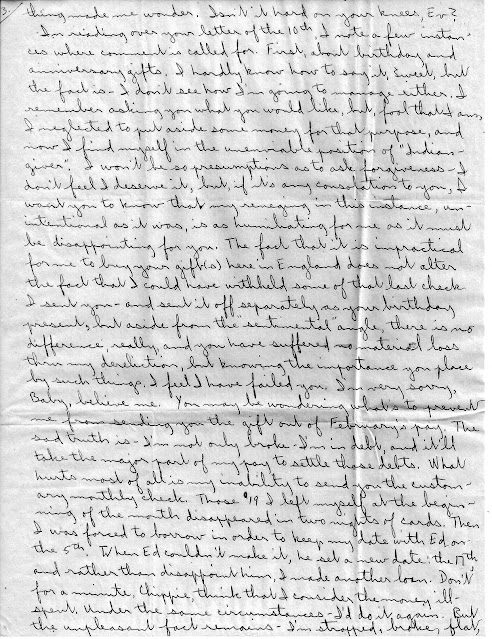 3.
thing made me wonder. Isn't it hard on your knees, Ev?
In reading over your letter of the 10th, I note a few instan-
ces where comment is called for. First, about birthday and
anniversary gifts. I hardly know how to say it, Sweet, but
the fact is - I don't see how I'm going to manage either. I
remember asking you what you would like, but, fool that I am,
I neglected to put aside some money for that purpose, and
now I find myself in the unenviable position of "Indian-
giver". I won't be so presumptious as to ask forgiveness - I
don't feel I deserve it, but, if it's any consolation to you, I
want you to know that my reneging in this instance, un-
intentional as it was, is as humiliating for me as it must
be disappointing for you. The fact that it is impractical
for me to buy your gift(s) here in England does not alter
the fact that I could have withheld some of that last check
I sent you - and sent it off separately as your birthday
present, but aside from the "sentimental" angle, there is no
difference, really, and you have suffered no material loss
thru my dereliction, but knowing the importance you place
by such things, I feel I have failed you. I'm very sorry,
Baby, believe me. You may be wondering what's to prevent
me from sending you the gift out of February's pay. The
sad truth is - I'm not only broke - I'm in debt, and it'll
take the major part of my pay to settle those debts. What
hurts most of all is my inability to send you the custom-
ary monthly check. Those $19 I left myself at the begin-
ning of the month disappeared in two nights of cards. Then
I was forced to borrow in order to keep my date with Ed on
the 5th. When Ed couldn't make it, he set a new date: the 17th,
and rather than disappoint him, I made another loan. Don't
for a minute, Chippie, think that I consider the money ill-
spent. Under the same circumstances - I'd do it again. But
the unpleasant fact remains - I'm strapped, broke, flat,